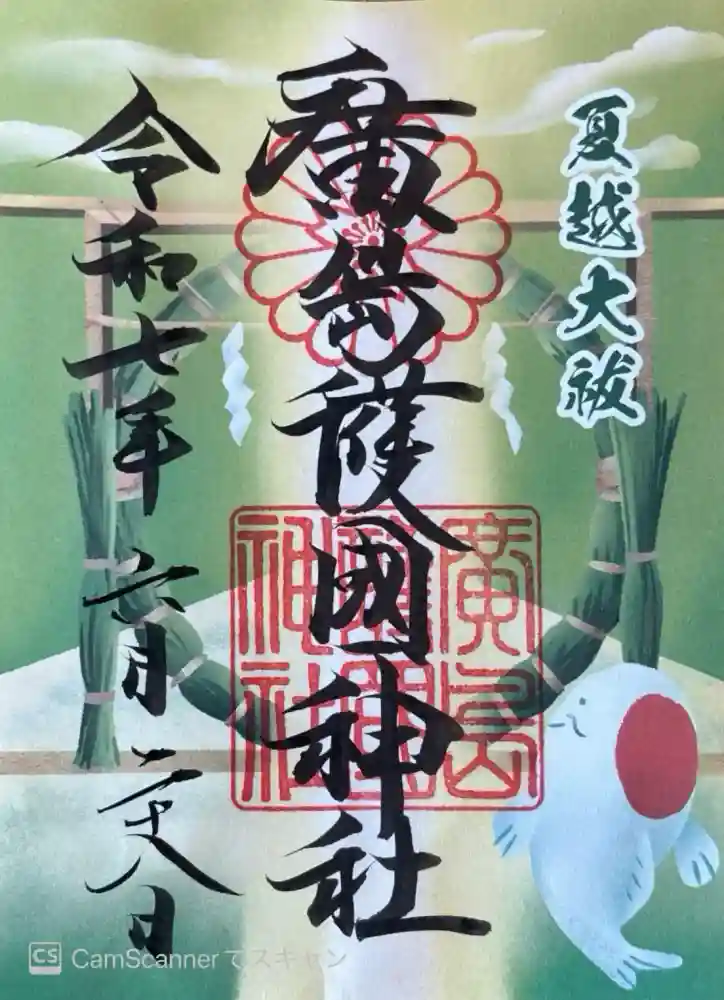 夏越大祓
廣島護國神社
廣島
護國
神社
令和七年 六月二十八日
CS CamScannerでスキャン